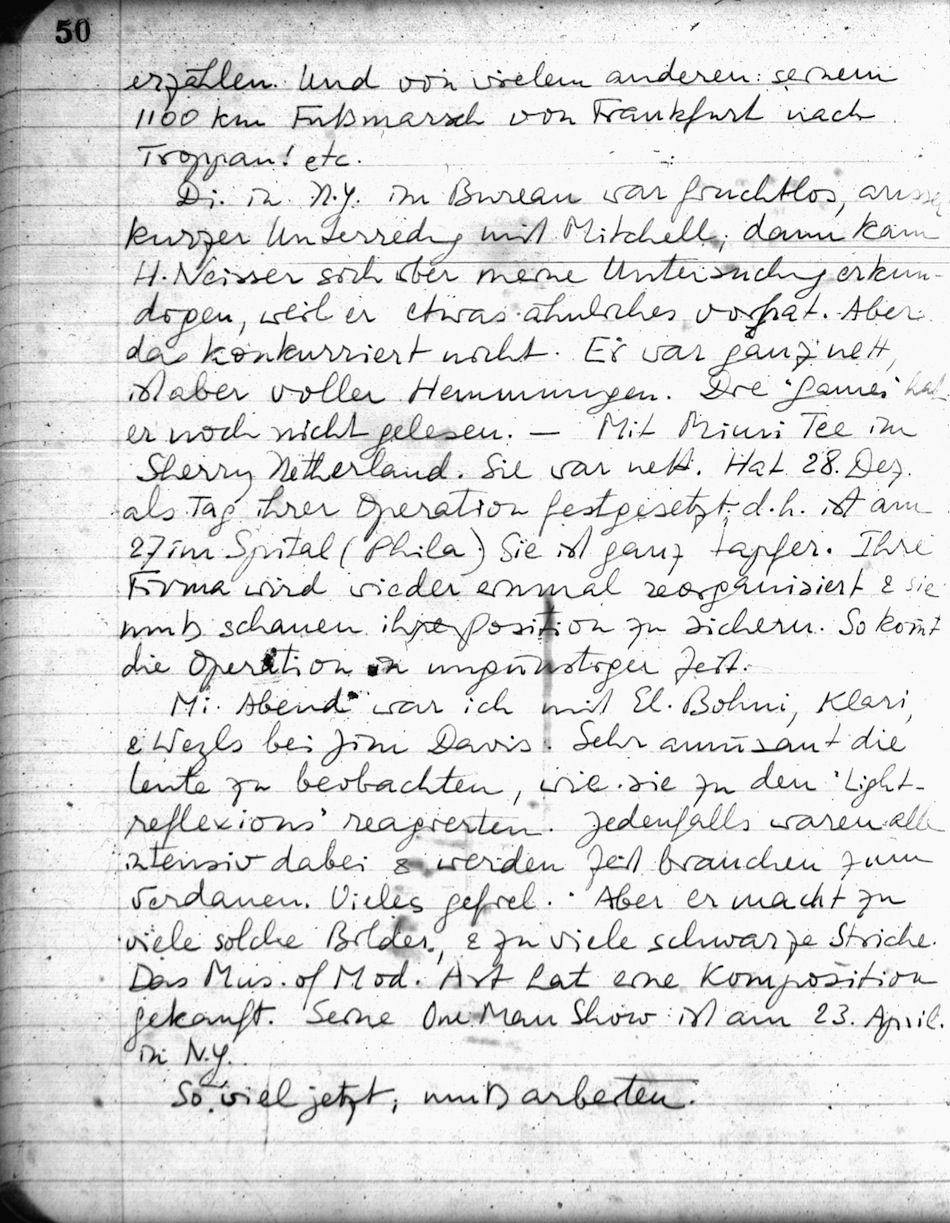 50
erzählen. Und von vielem anderen: seinem
1100 km Fußmarsch von Frankfurt nach
Troppau! etc.
Di. in N.Y. im Bureau war fruchtlos, ausser
kurzer Unterredung mit Mitchell, dann kam
H. Neisser sich über meine Untersuchung erkun-
digen, weil er etwas ähnliches vorhat. Aber
das konkurriert nicht. Er war ganz nett,
ist aber voller Hemmungen. Die 'Games' hat
er noch nicht gelesen. — Mit Mimi Tee im
Sherry Netherland. Sie war nett. Hat 28. Dez.
als Tag ihrer Operation festgesetzt, d.h. ist am
27 im Spital (Phila) Sie ist ganz tapfer. Ihre
Firma wird wieder einmal reorganisiert & sie
muß schauen ihre Position zu sichern. So komt
die Operation in ungünstiger Zeit.
Mi. Abend war ich mit El. Bohni, Klari,
& Wezls bei Jim Davis. Sehr amüsant die
Leute zu beobachten, wie sie zu den 'Light-
reflexions' reagierten. Jedenfalls waren alle
intensiv dabei & werden Zeit brauchen zum
Verdauen. Vieles gefiel. Aber er macht zu
viele solche Bilder, & zu viele schwarze Striche.
Das Mus. of Mod. Art hat eine Komposition
gekauft. Seine One Man Show ist am 23. April.
in N.Y.
So viel jetzt, muß arbeiten.